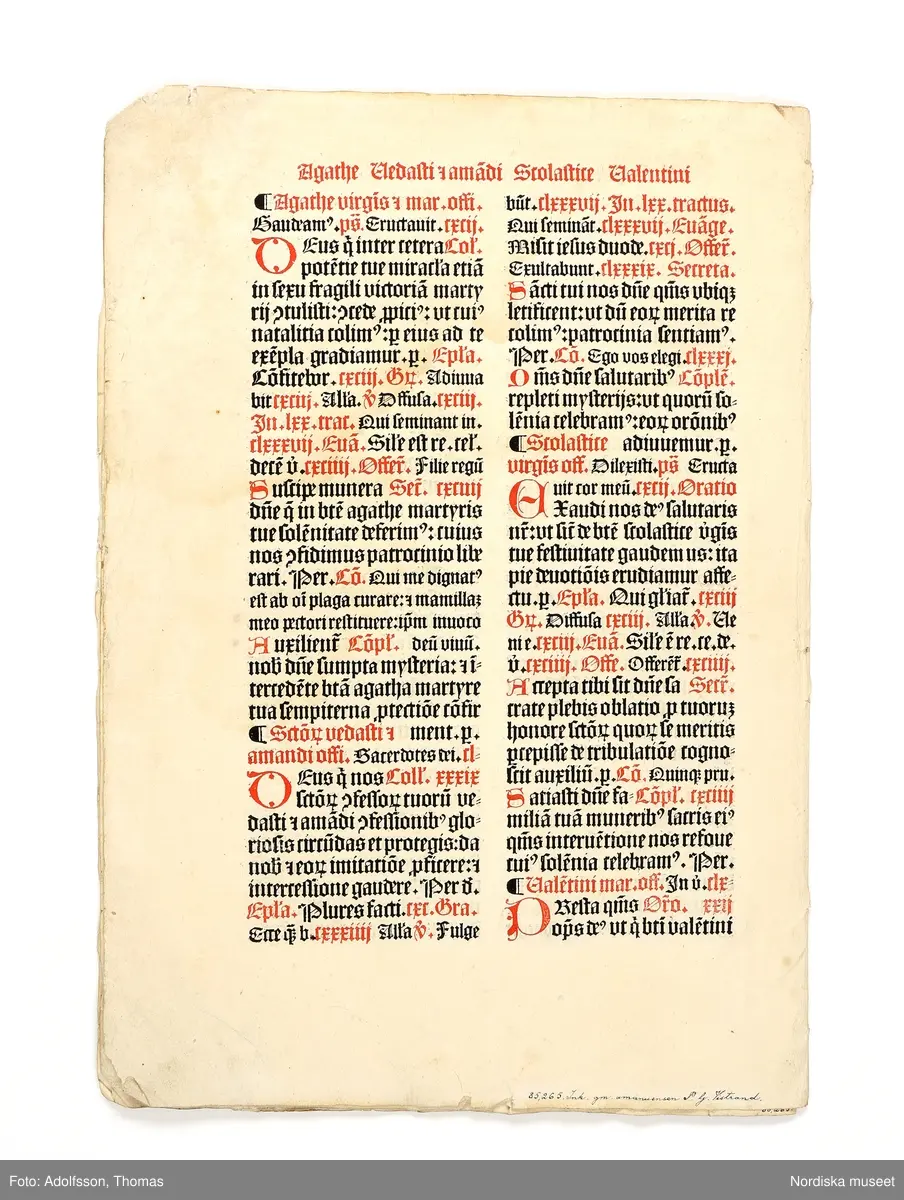 Agathe Uedasti ⁊ amãdi Scolastice Ualentini
¶ Agathe virgĩs ⁊ mar. offi.
Gaudeamꝰ. ps̃. Eructauit. cxcij.
DEus q̇ inter cetera Col̃.
potẽtie tue miracl̃a etiã
in sexu fragili victoriã marty
rij ↄtulisti: ↄcede ꝓpiciꝰ: vt cuiꝰ
natalitia colimꝰ: ꝑ eius ad te
exẽpla gradiamur. ꝑ. Epl̃a.
Cõfitebor. cxciij. Gꝝ. Adiuua
bit cxciij. All̃a. v̇ Diffusa. cxciij.
In. lxx. trac. Qui seminant in.
clxxxvij. Euã. Sil̃e est re. cel̃.
decẽ v̇. cxciiij. Offer̃. Filie regũ
Suscipe munera Secr̃. cxcvij
dñe q̃ in btẽ agathe martyris
tue solẽnitate deferimꝰ: cuius
nos ↄfidimus patrocinio libe
rari. Per. Cõ. Qui me dignatꝰ
est ab oĩ plaga curare: ⁊ mamillaꝫ
meo pectori restituere: ip̃m inuoco
Auxilient̃ Cõpl̃. deũ viuũ.
nob̃ dñe sumpta mysteria: ⁊ ĩ-
tercedẽte btã agatha martyre
tua sempiterna ꝓtectiõe cõfir
¶ Sctõꝝ vedasti ⁊ ment. ꝑ.
amandi offi. Sacerdotes dei. cl-
DEus q̇ nos Coll̃. xxxix
sctõꝝ ↄfessoꝝ tuorũ ve-
dasti ⁊ amãdi ↄfessionibꝰ glo-
riosis circũdas et protegis: da
nob̃ ⁊ eoꝝ imitatiõe ꝓficere: ⁊
intercessione gaudere. Per d̃.
Epl̃a. Plures facti. cxc. Gra.
Ecce q̃ b. clxxxiiij All̃a v̇. Fulge
bũt. clxxxvij. In. lxx. tractus.
Qui seminãt. clxxxvij. Euãge.
Misit iesus duode. cxcj. Offer̃.
Exultabunt. clxxxix. Secreta.
Sãcti tui nos dñe qm̃s vbiqꝫ
letificent: vt dũ eoꝝ merita re
colimꝰ: patrocinia sentiamꝰ.
Per. Cõ. Ego vos elegi. clxxxj.
Om̃s dñe salutaribꝰ Cõplẽ.
repleti mysterijs: vt quorũ so-
lẽnia celebramꝰ: eoꝝ orõnibꝰ
¶ Scolastice adiuuemur. ꝑ.
virgĩs off. Dilexisti. ps̃ Eructa
uit cor meũ. cxcij. Oratio
EXaudi nos deꝰ salutaris
nr̃: vt sic̃ de btẽ scolastice v̇gĩs
tue festiuitate gaudemus: ita
pie deuotiõis erudiamur affe-
ctu. ꝑ. Epl̃a. Qui gl̃iat̃. cxciij
Gꝝ. Diffusa cxciij. All̃a v̇. Ue
nie. cxciij. Euã. Sil̃e ẽ re. ce. de.
v̇. cxciiij. Offe. Offerẽt̃. cxciiij.
Accepta tibi sit dñe sa Secr̃.
crate plebis oblatio ꝓ tuoruꝫ
honore sctõꝝ quoꝝ se meritis
p̃cepisse de tribulatiõe cogno-
scit auxiliũ. ꝑ. Cõ. Quinqꝫ pru.
Satiasti dñe fa- Cõpl̃. cxciiij
miliã tuã muneribꝰ sacris eiꝰ
qm̃s interuẽtione nos refoue
cuiꝰ solẽnia celebramꝰ. Per.
¶ Ualẽtini mar. off. In v̇. clx-
PResta qm̃s Or̃o. xxij
op̃s deꝰ vt q̇ bt̃i valẽtini
85,265. Ink. gm amanuensen P. G. Vistrand.
Foto: Adolfsson, Thomas
Nordiska museet